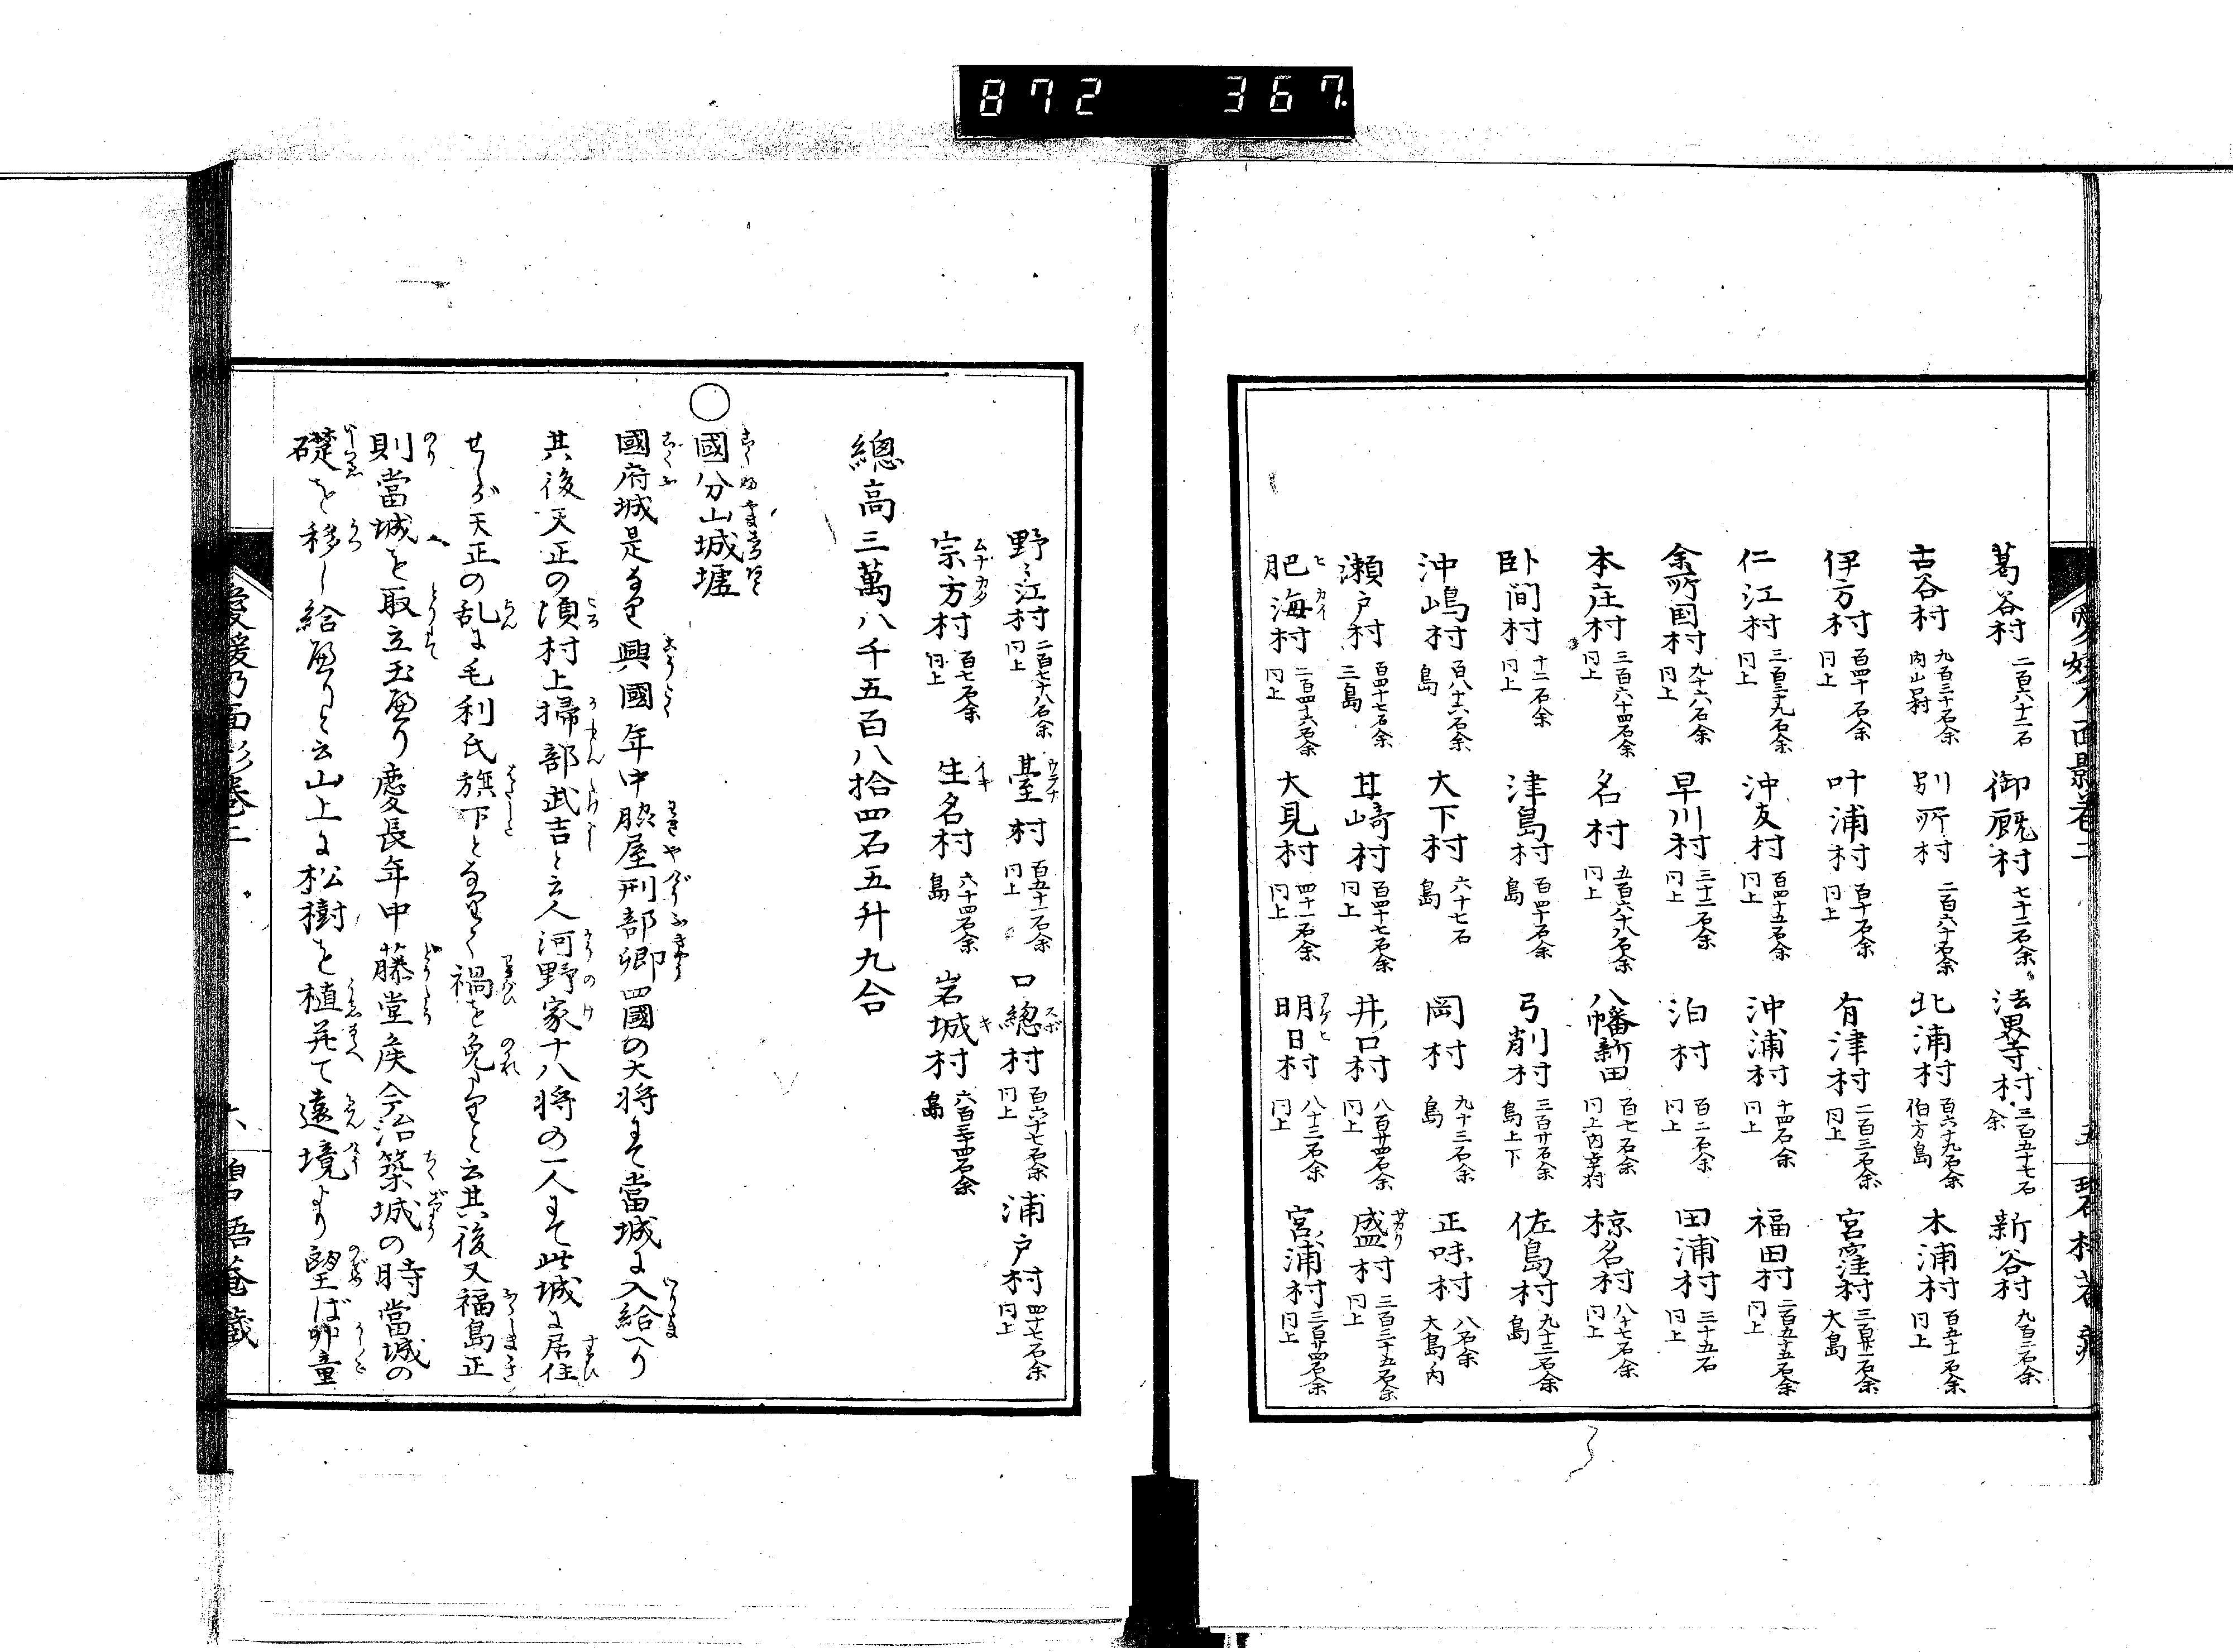 872 367
葛谷村 二百六十二石 御厩村 七十二石余 法界寺村 三百五十七石余 新谷村 九百三石余
古谷村 九百三十石余 別所村 二百六十石余 北浦村 百六十九石余 伯方島 木浦村 百五十一石余 同上
伊方村 百四十石余 同上 叶浦村 百十石余 同上 有津村 二百三石余 同上 宮窪村 大島
仁江村 三百三十九石余 同上 沖友村 百四十五石余 同上 沖浦村 十四石余 同上 福田村 二百五十五石余 同上
余所国村 九十六石余 同上 早川村 三十二石余 同上 泊村 百二石余 同上 田浦村 三十五石 同上
本庄村 三百六十四石余 同上 名村 五百六十八石余 同上 八幡新田 百七石余 椋名村 八十七石余 同上
卧間村 十二石余 同上 津島村 百四十石余 島 弓削村 三百廿石余 島上下 佐島村 九十三石余 島
沖嶋村 百八十六石余 島 大下村 六十七石 島 岡村 九十三石余 島 正味村 八石余 大島内
瀬戸村 百四十七石余 三島 甘﨑村 百四十七石余 同上 井ノ口村 八百廿四石余 同上 盛村 サカリ 三百三十五石余 同上
肥海村 ヒカイ 二百四十六石余 同上 大見村 四十一石余 同上 明日村 アケヒ 八十三石余 同上 宮浦村 三百廿四石余 同上
野々江村 二百七十八石余 同上 臺村 ウテナ 百五十一石余 同上 口總村 スボ 百六十七石余 同上 浦戸村 四十七石余 同上
宗方村 ムナカタ 百七石余 同上 生名村 イキ 六十四石余 島 岩城村 キ 六百三十四石余 島
總高三萬八千五百八拾四石五升九合
○國分山城墟
國府城是なり興國年中脇屋刑部卿四國の大将にて當城に入給へり
其後天正の頃村上掃部武吉と云人河野家十八将の一人にて此城に居住
せしが天正の乱に毛利氏旗下となりて禍を免りと云其後又福島正
則當城を取立玉へり慶長年中藤堂侯今治築城の時當城の
礎を移し給へりと云山上に松樹を植茂て遠境より望ば丱童
愛媛乃面影巻二